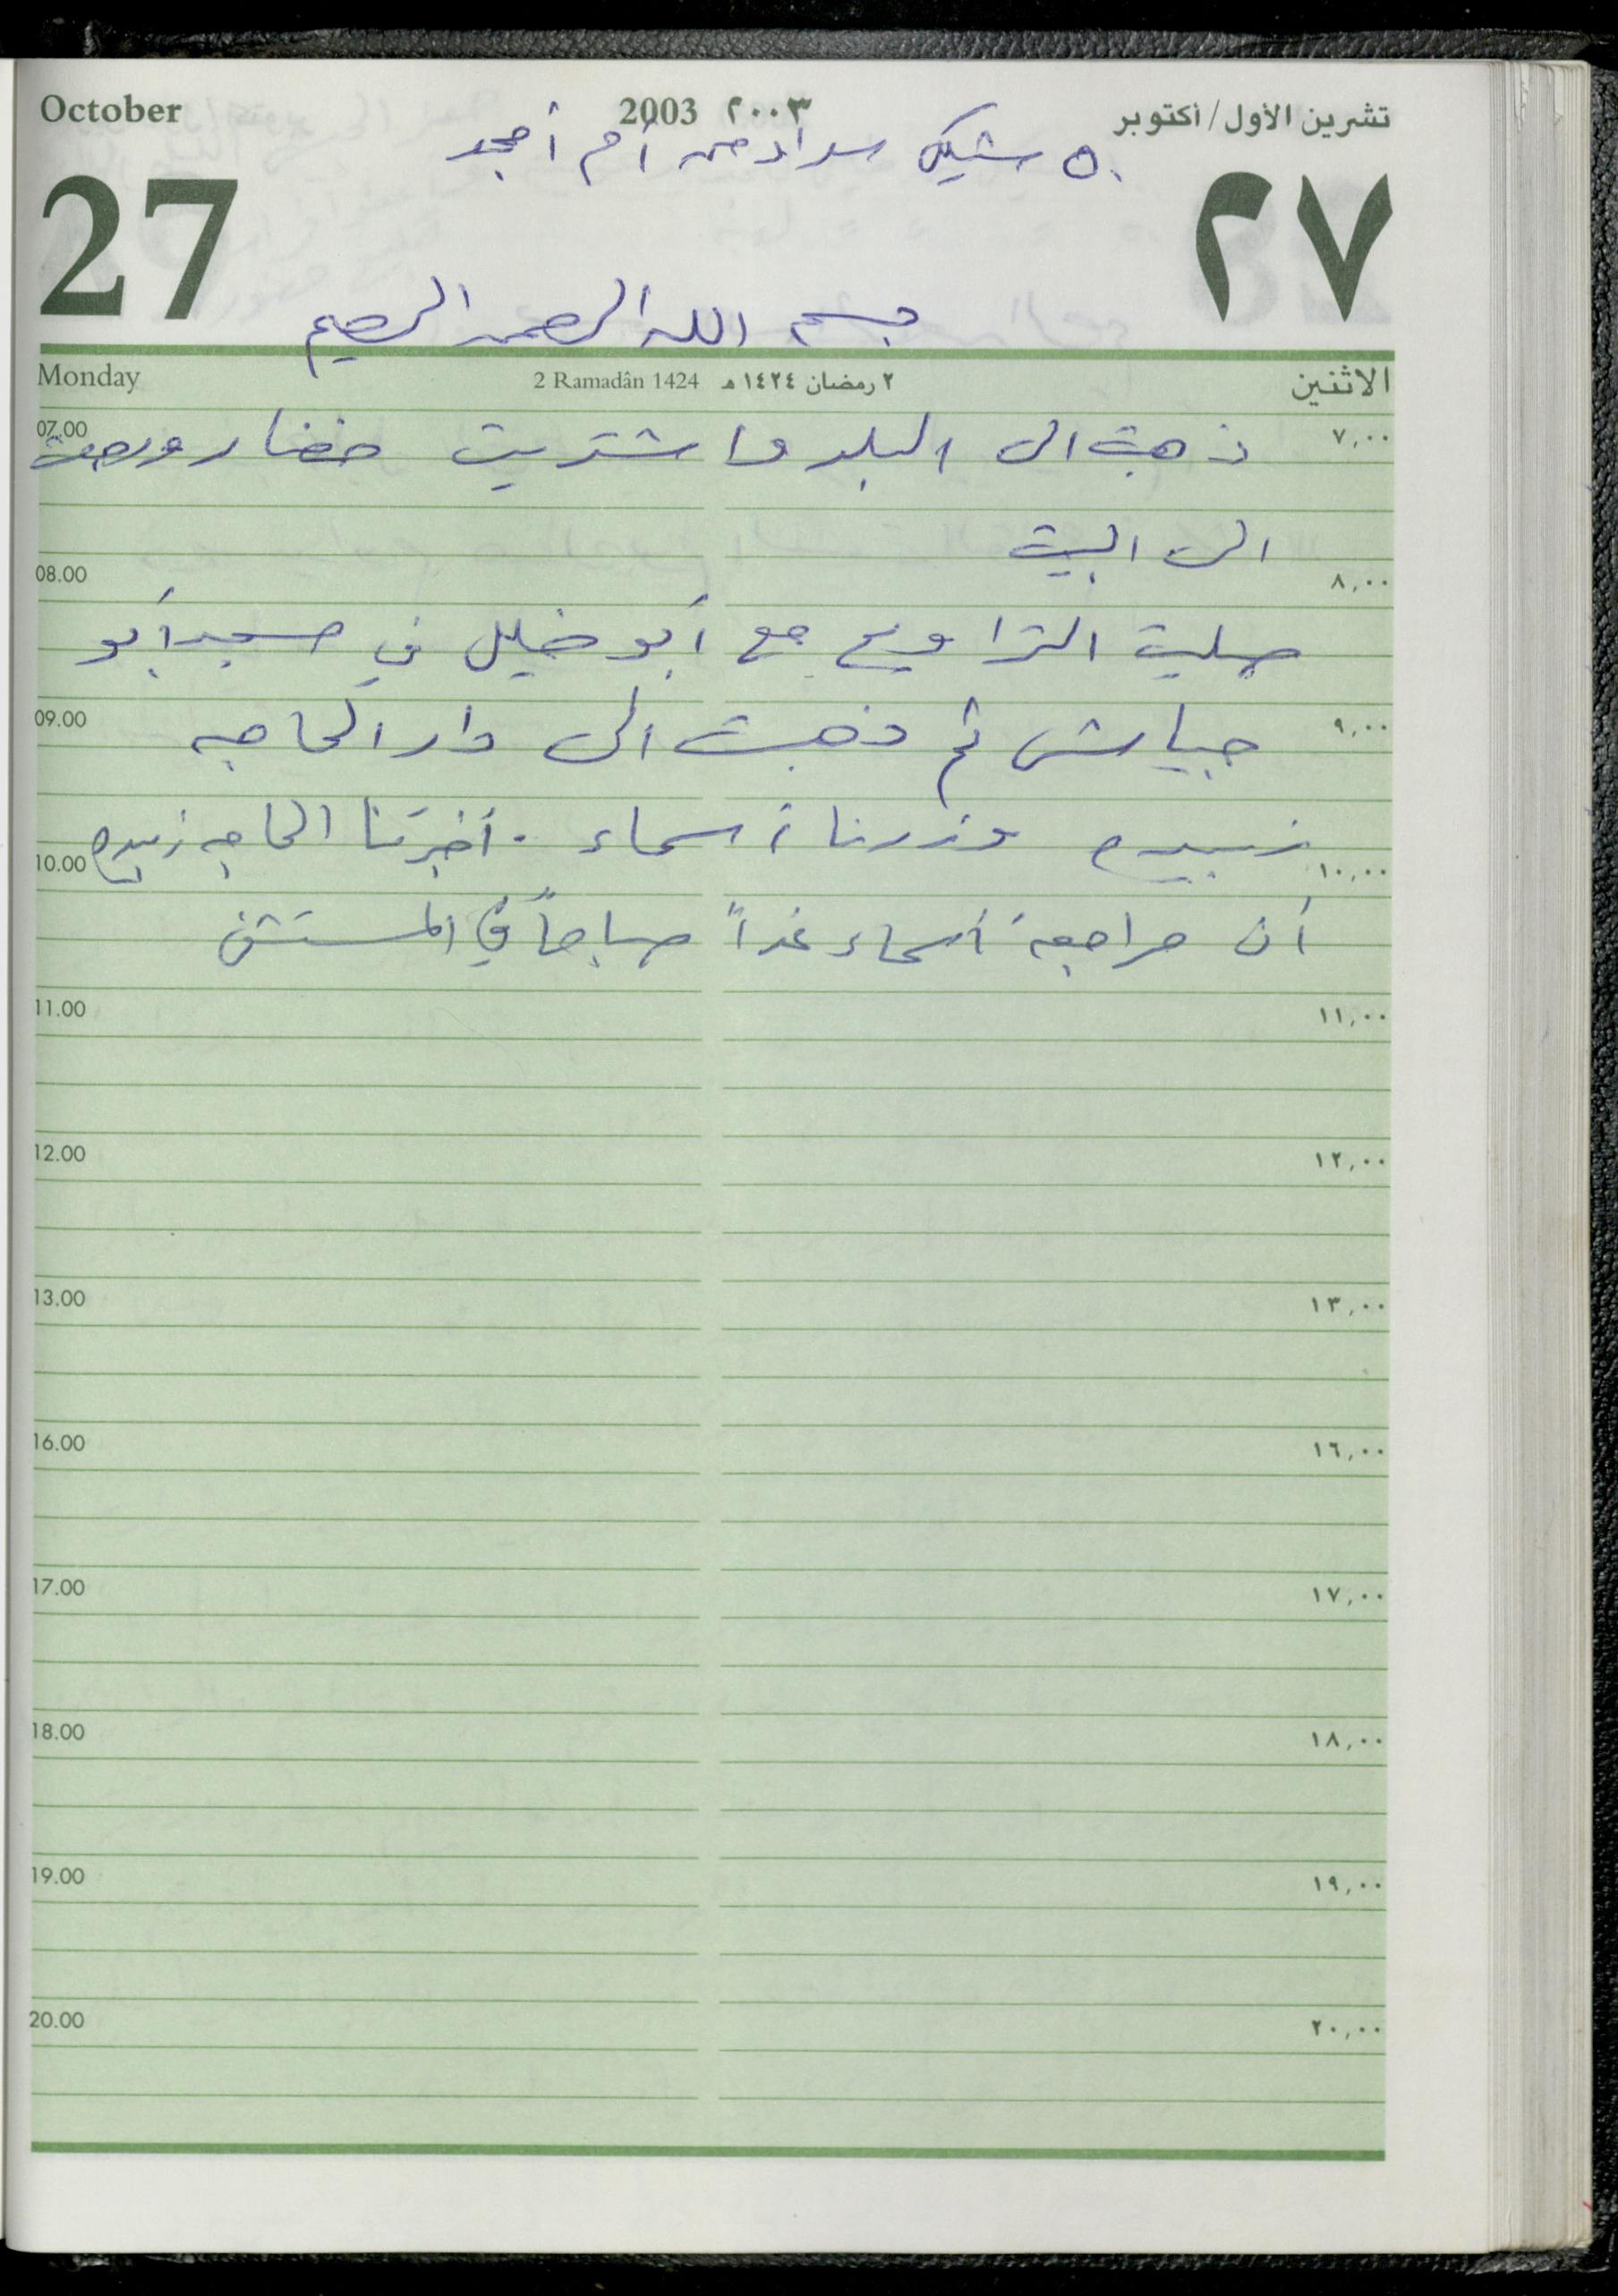 October 2003 ٢٠٠٣ تشرين الأول/أكتوبر
٥٠ شيكل سداد من أم أمجد
27 ٢٧
بسم الله الرحمن الرحيم
Monday 2 Ramadân 1424 ٢ رمضان ١٤٢٤ هـ الاثنين
07.00 ذهبت الى البلد واشتريت خضار ورجعت ٧,٠٠
الى البيت
08.00 ٨,٠٠
صليت التراويح مع أبو خليل في مسجد أبو
09.00 جيايش ثم ذهبت الى دار الحاجه ٩,٠٠
زبيده وزرنا أسماء . أخبرتنا الحاجه زبيده
10.00 ١٠,٠٠
أن مراجعة أسماء غداً صباحاً في المستشفى
11.00 ١١,٠٠
12.00 ١٢,٠٠
13.00 ١٣,٠٠
16.00 ١٦,٠٠
17.00 ١٧,٠٠
18.00 ١٨,٠٠
19.00 ١٩,٠٠
20.00 ٢٠,٠٠